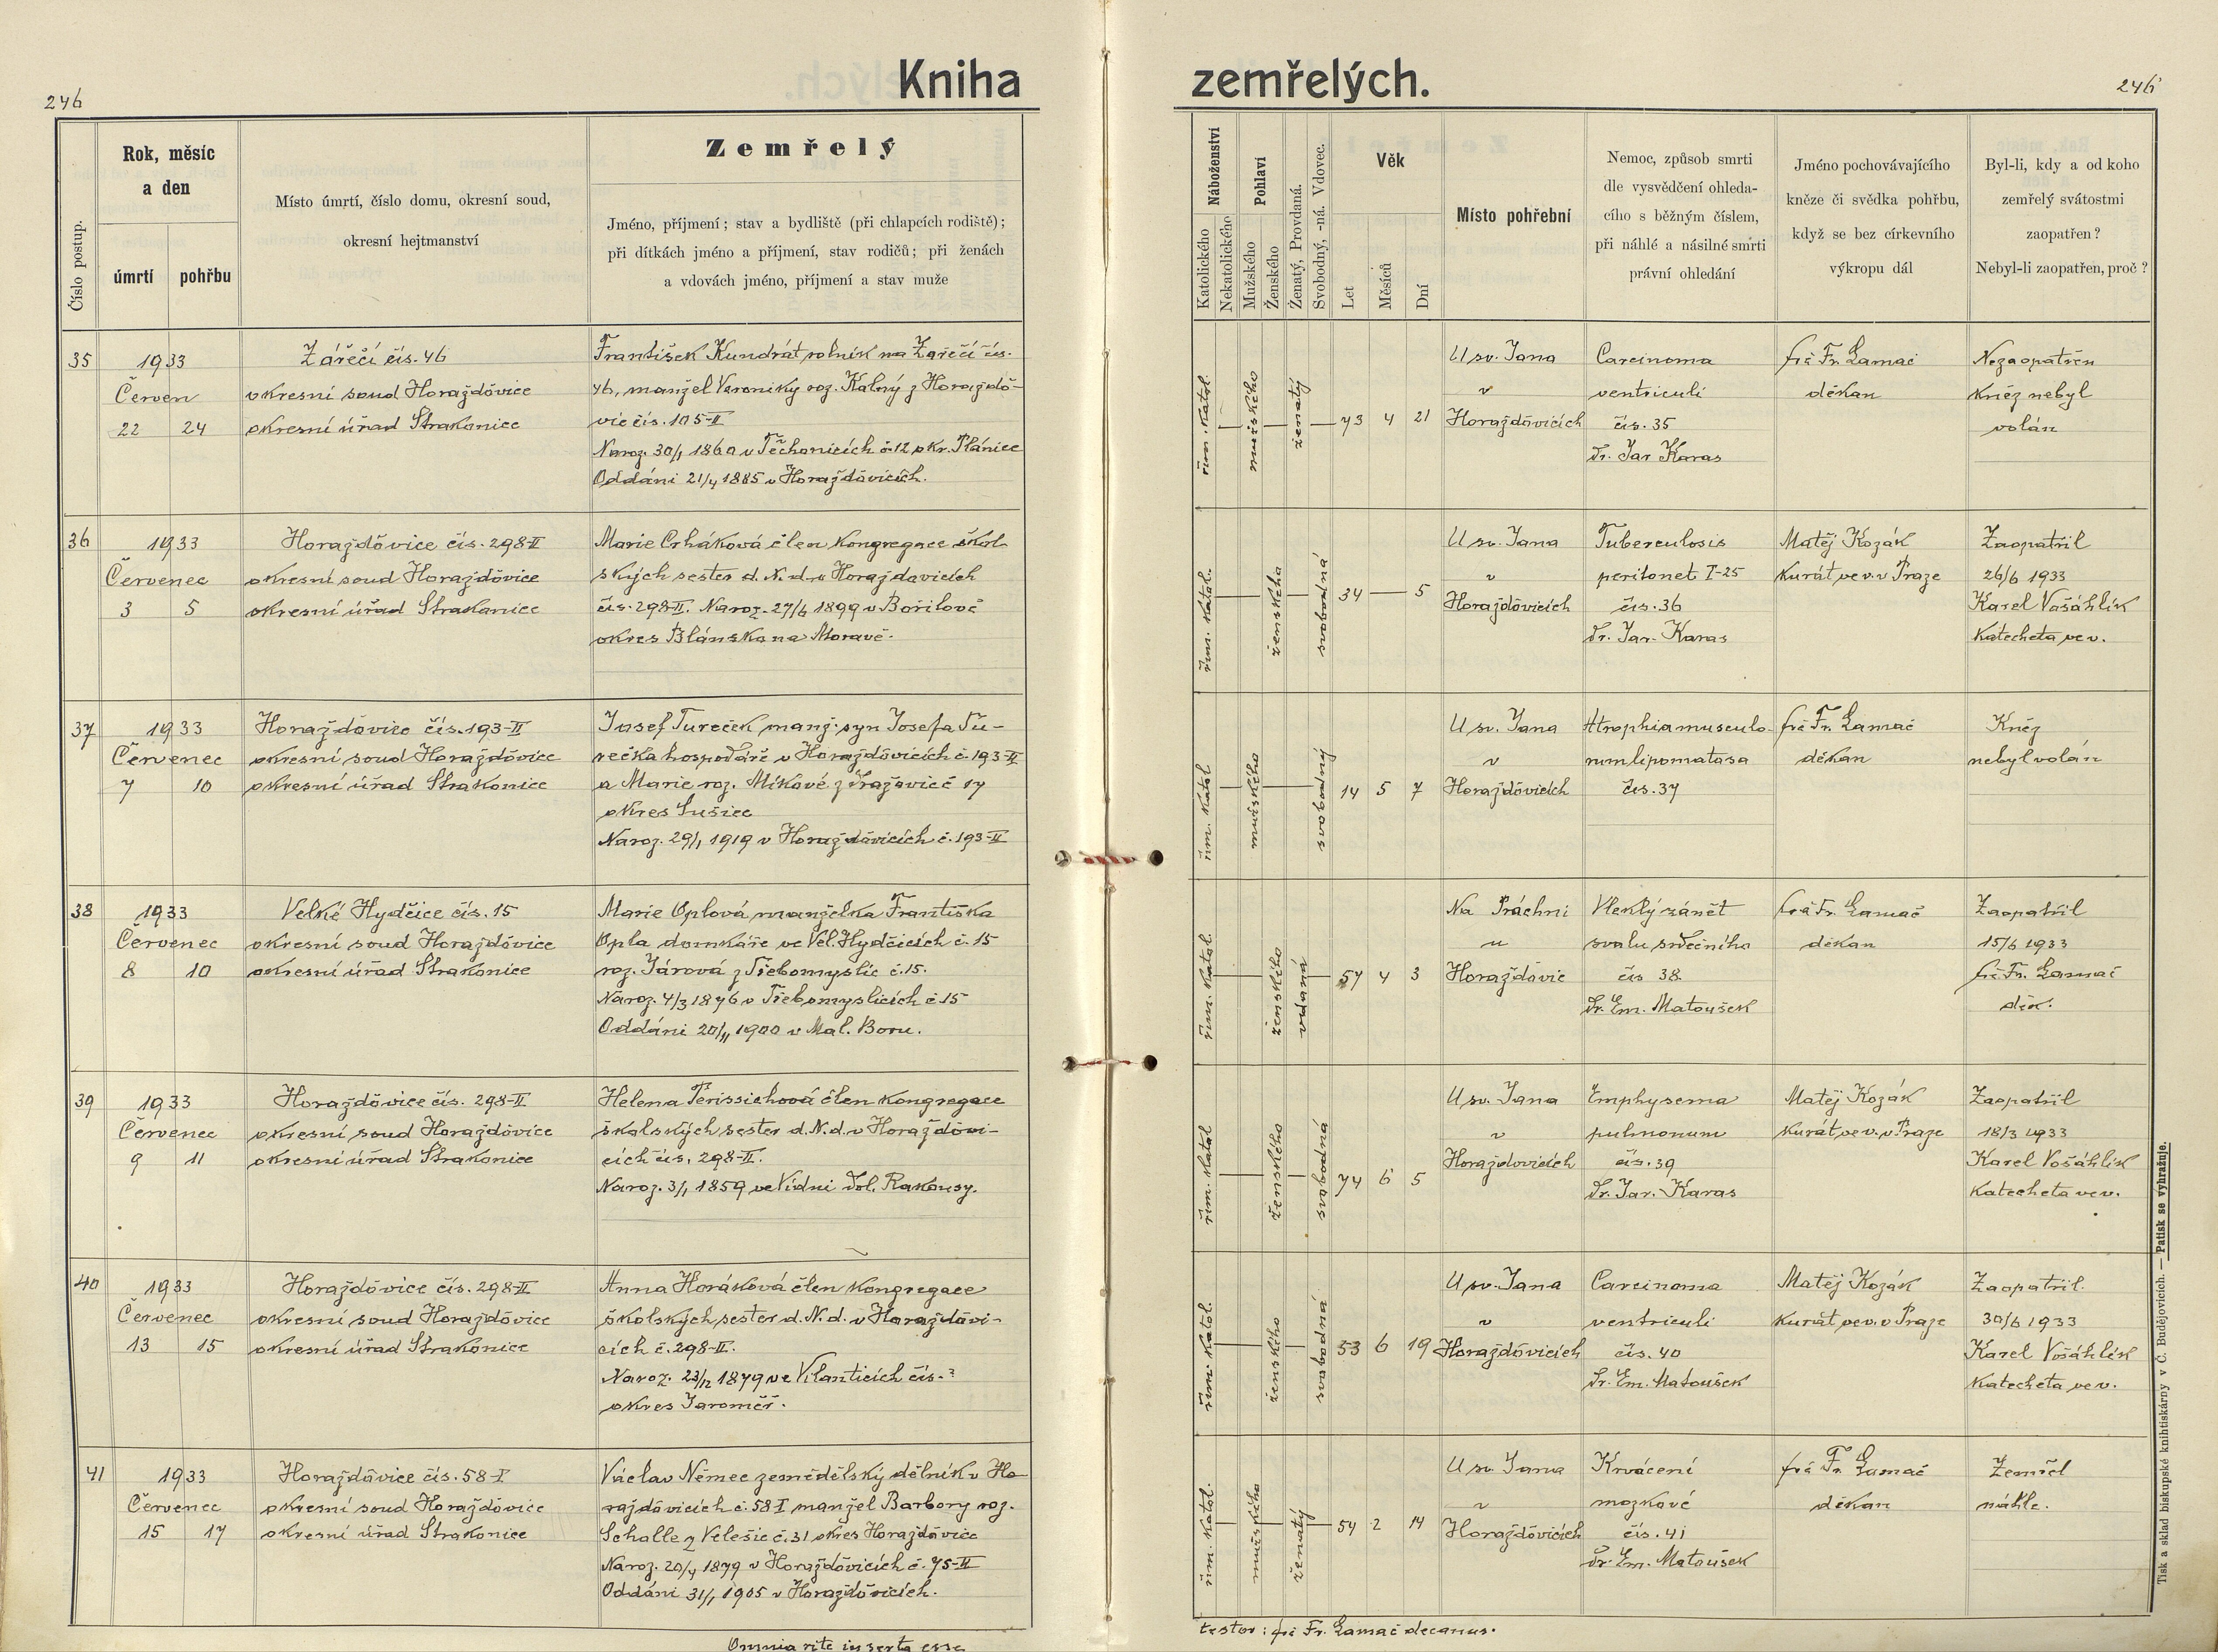 Kniha zemřelých.
246
246
Číslo postup.
Rok, měsíc
a den
úmrtí
pohřbu
Místo úmrtí, číslo domu, okresní soud,
okresní hejtmanství
Zemřelý
Jméno, příjmení; stav a bydliště (při chlapcích rodiště);
při dítkách jméno a příjmení, stav rodičů; při ženách
a vdovách jméno, příjmení a stav muže
Náboženství
Katolického
Nekatolického
Pohlaví
Mužského
Ženského
Ženatý, Provdaná.
Svobodný, -ná. Vdovec.
Věk
Let
Měsíců
Dní
Místo pohřební
Nemoc, způsob smrti
dle vysvědčení ohleda-
cího s běžným číslem,
při náhlé a násilné smrti
právní ohledání
Jméno pochovávajícího
kněze či svědka pohřbu,
když se bez církevního
výkropu dál
Byl-li, kdy a od koho
zemřelý svátostmi
zaopatřen?
Nebyl-li zaopatřen, proč?
35
1933
Červen
22 24
Zářečí čís. 46
okresní soud Horažďovice
okresní úřad Strakonice
František Kundrát rolník na Zářečí čís.
46, manžel Veroniky roz. Kalný z Horažďo-
vic čís. 105-II
Naroz. 30/1 1860 v Těchonicích č. 12 okr. Plánice
Oddáni 21/4 1885 v Horažďovicích.
řím. katol.
mužského
ženatý
73 4 21
U sv. Jana
v
Horažďovicích
Carcinoma
ventriculi
čís. 35
Dr. Jar. Karas
frč Fr. Lamač
děkan
Nezaopatřen
Kněz nebyl
volán
36
1933
Červenec
3 5
Horažďovice čís. 298-II
okresní soud Horažďovice
okresní úřad Strakonice
Marie Crháková člen kongregace škol-
ských sester d. N. d. v Horažďovicích
čís. 298-II. Naroz. 27/6 1899 v Bořitově
okres Blánsko na Moravě.
řím. katol.
ženského
svobodná
34 — 5
U sv. Jana
v
Horažďovicích
Tuberculosis
peritonei I-25
čís. 36
Dr. Jar. Karas
Matěj Kozák
kurát ve v. v Praze
Zaopatřil
26/6 1933
Karel Vošáhlík
katecheta ve v.
37
1933
Červenec
7 10
Horažďovice čís. 193-II
okresní soud Horažďovice
okresní úřad Strakonice
Josef Tureček manž. syn Josefa Tu-
rečka hospodáře v Horažďovicích č. 193-II
a Marie roz. Míkové z Dražovic č 17
okres Sušice
Naroz. 29/1 1919 v Horažďovicích č. 193-II
řím. katol.
mužského
svobodný
14 5 7
U sv. Jana
v
Horažďovicích
Atrophia musculo-
rum lipomatosa
čís. 37
frč Fr. Lamač
děkan
Kněz
nebyl volán
38
1933
Červenec
8 10
Velké Hydčice čís. 15
okresní soud Horažďovice
okresní úřad Strakonice
Marie Oplová manželka Františka
Opla domkáře ve Vel. Hydčicích č. 15
roz. Járová z Třebomyslic č. 15.
Naroz. 4/3 1876 v Třebomyslicích č 15
Oddáni 20/11 1900 v Mal. Boru.
řím. katol.
ženského
vdaná
57 4 3
Na Práchni
u
Horažďovic
Vleklý zánět
svalu srdečního
čís 38
Dr. Em. Matoušek
frč Fr. Lamač
děkan
Zaopatřil
15/6 1933
frč Fr. Lamač
děk.
39
1933
Červenec
9 11
Horažďovice čís. 298-II
okresní soud Horažďovice
okresní úřad Strakonice
Helena Terissichová člen kongregace
školských sester d. N. d. v Horažďovi-
cích čís. 298-II.
Naroz. 3/1 1859 ve Vídni Dol. Rakousy.
řím. katol.
ženského
svobodná
74 6 5
U sv. Jana
v
Horažďovicích
Emphysema
pulmonum
čís. 39
Dr. Jar. Karas
Matěj Kozák
kurát ve v. v Praze
Zaopatřil
18/3 1933
Karel Vošáhlík
katecheta ve v.
40
1933
Červenec
13 15
Horažďovice čís. 298-II
okresní soud Horažďovice
okresní úřad Strakonice
Anna Horáková člen kongregace
školských sester d. N. d. v Horažďovi-
cích č. 298-II.
Naroz. 23/12 1879 ve Vilanticích čís. ?
okres Jaroměř.
řím. katol.
ženského
svobodná
53 6 19
U sv. Jana
v
Horažďovicích
Carcinoma
ventriculi
čís. 40
Dr. Em. Matoušek
Matěj Kozák
kurát ve v. v Praze
Zaopatřil.
30/6 1933
Karel Vošáhlík
katecheta ve v.
41
1933
Červenec
15 17
Horažďovice čís. 58-I
okresní soud Horažďovice
okresní úřad Strakonice
Václav Němec zemědělský dělník v Ho-
ražďovicích č. 58 I manžel Barbory roz.
Schalle z Velešic č. 31 okres Horažďovice
Naroz. 20/4 1879 v Horažďovicích č. 75-II
Oddáni 31/1 1905 v Horažďovicích.
řím. katol.
mužského
ženatý
54 2 14
U sv. Jana
v
Horažďovicích
Krvácení
mozkové
čís. 41
Dr. Em. Matoušek
frč Fr. Lamač
děkan
Zemřel
náhle.
Omnia rite inserta esse
testor: frč Fr. Lamač decanus.
Tisk a sklad biskupské knihtiskárny v Č. Budějovicích. — Patisk se vyhražuje.